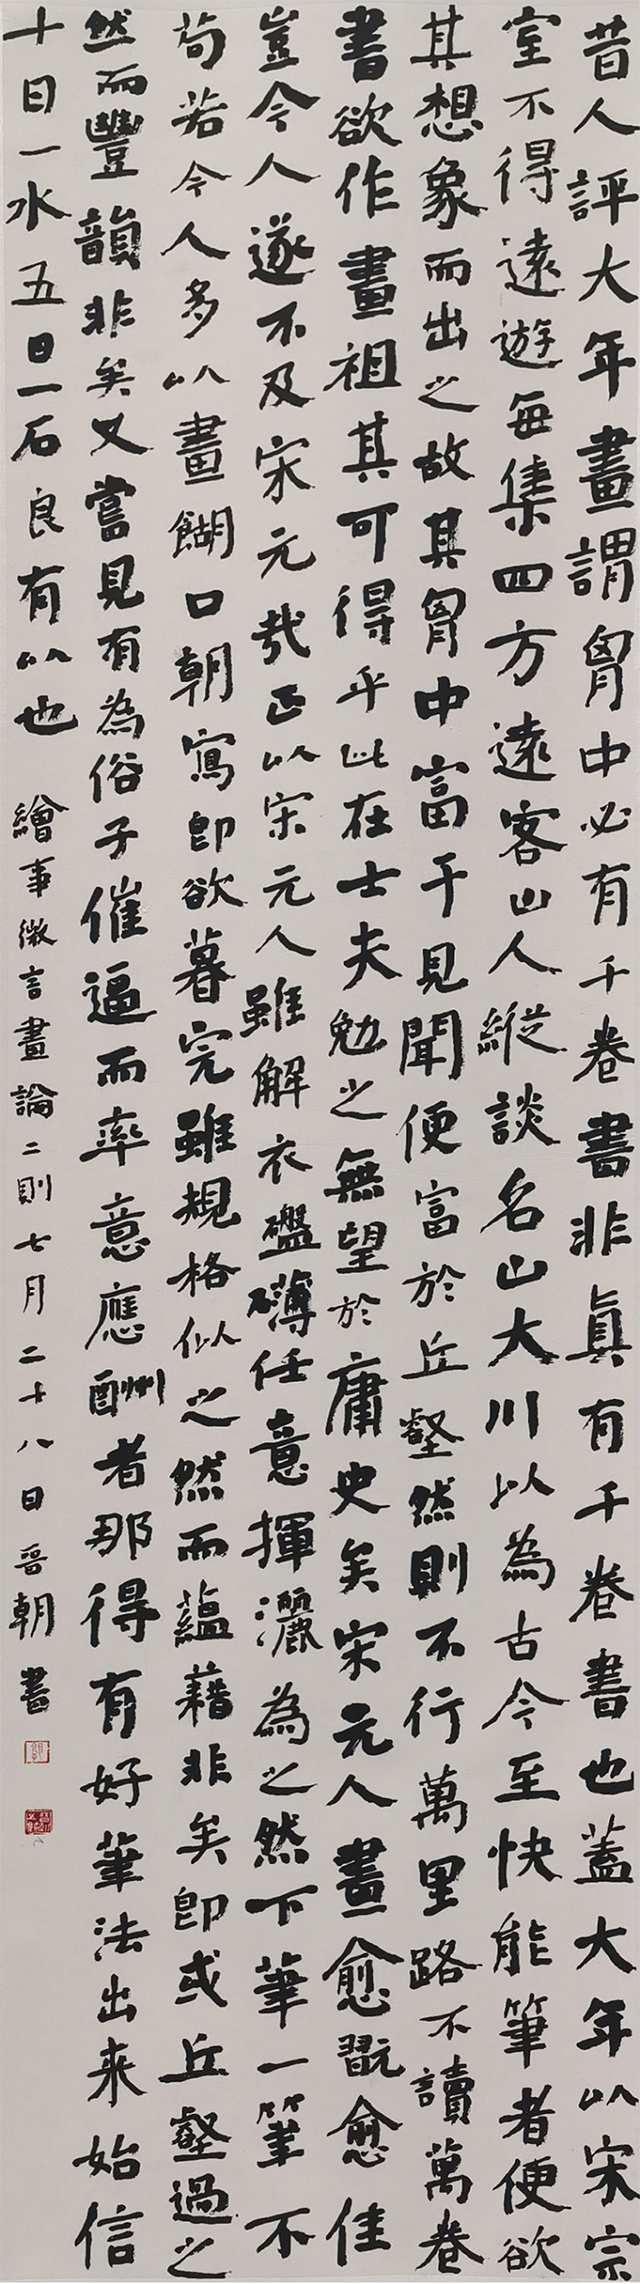 昔人評大年畫謂胷中必有千卷書非真有千卷書也蓋大年以宋宗
室不得遠遊每集四方遠客山人縱談名山大川以為古今至快能筆者便欲
其想象而出之故其胷中富于見聞便富於丘壑然則不行萬里路不讀萬卷
書欲作畫祖其可得乎此在士夫勉之無望於庸史矣宋元人畫愈翫愈佳
豈今人遂不及宋元哉正以宋元人雖解衣礠礴任意揮灑為之然下筆一筆不
苟若今人多以畫餬口朝寫即欲暮完雖規格似之然而蘊藉非矣即或丘壑過之
然而豐韻非矣又嘗見有為俗子催逼而率意應酬者那得有好筆法出来始信
十日一水五日一石良有以也 繪事微言畫論二則七月二十八日晉朝書